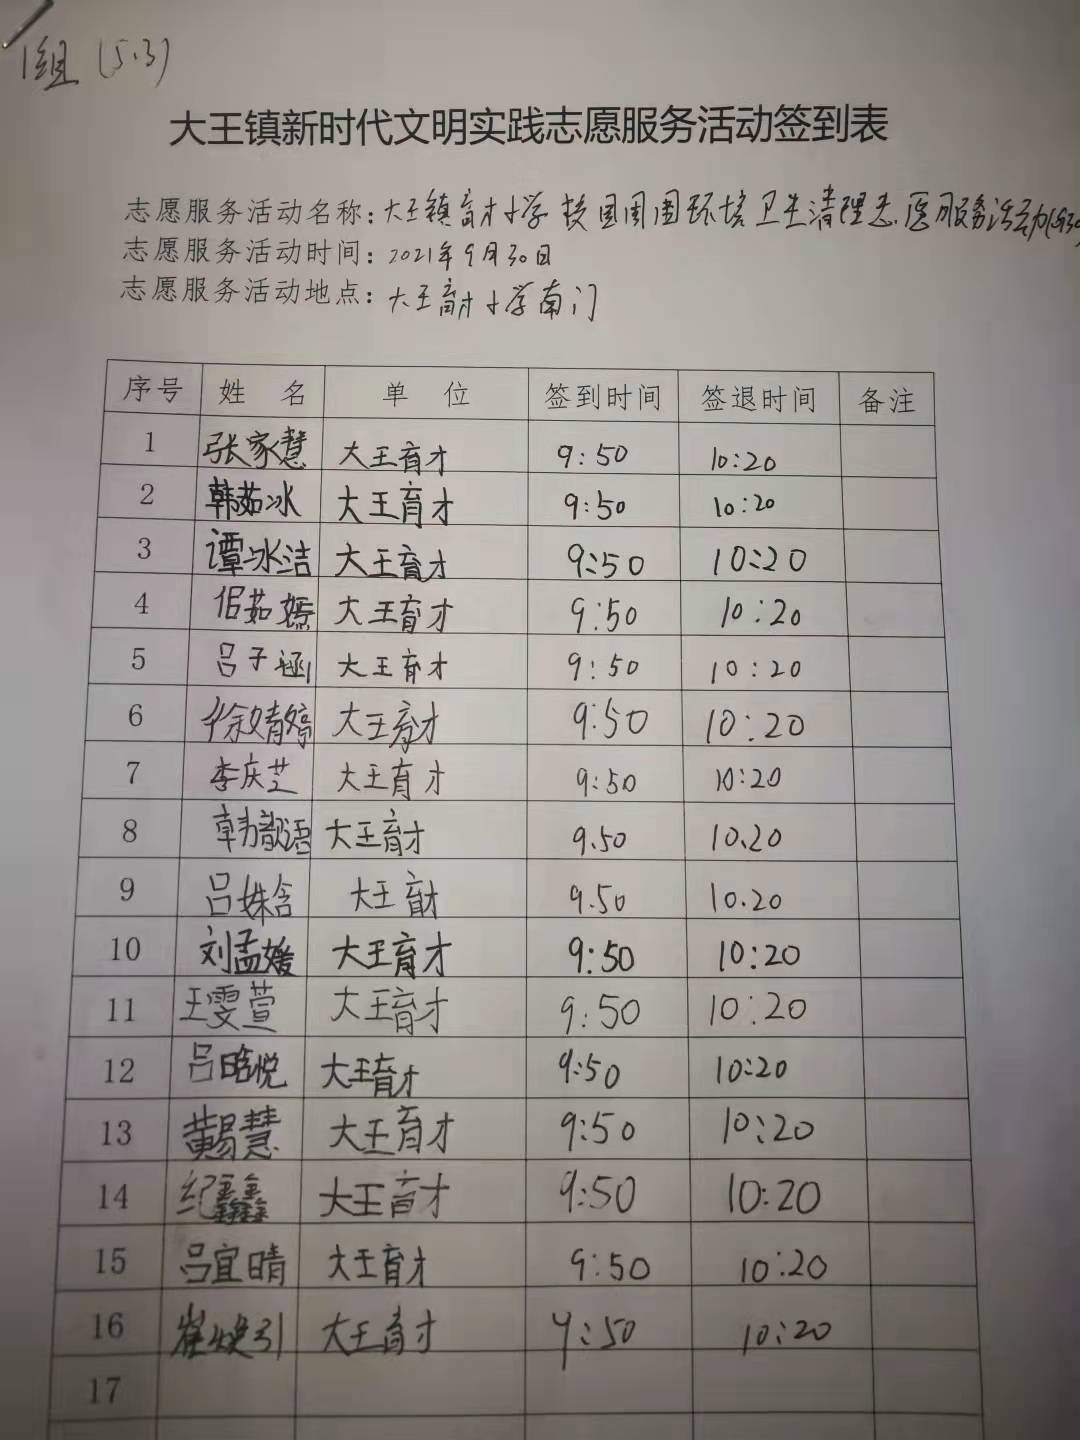 1组 (5.3)
大王镇新时代文明实践志愿服务活动签到表
志愿服务活动名称：大王镇育才小学校园周围环境卫生清理志愿服务活动(930
志愿服务活动时间：2021年9月30日
志愿服务活动地点：大王育才小学南门
序号 姓 名 单 位 签到时间 签退时间 备注
1 张家慧 大王育才 9:50 10:20
2 韩茹冰 大王育才 9:50 10:20
3 谭冰洁 大王育才 9:50 10:20
4 但茹嫣 大王育才 9:50 10:20
5 吕子涵 大王育才 9:50 10:20
6 徐婧婷 大王育才 9:50 10:20
7 李庆芝 大王育才 9:50 10:20
8 韩歆语 大王育才 9.50 10.20
9 吕姝含 大王育才 9.50 10.20
10 刘孟媛 大王育才 9:50 10:20
11 王雯萱 大王育才 9:50 10:20
12 吕晗悦 大王育才 9:50 10:20
13 黄易慧 大王育才 9:50 10:20
14 纪鑫鑫 大王育才 9:50 10:20
15 吕宜晴 大王育才 9:50 10:20
16 崔 大王育才 9:50 10:20
17